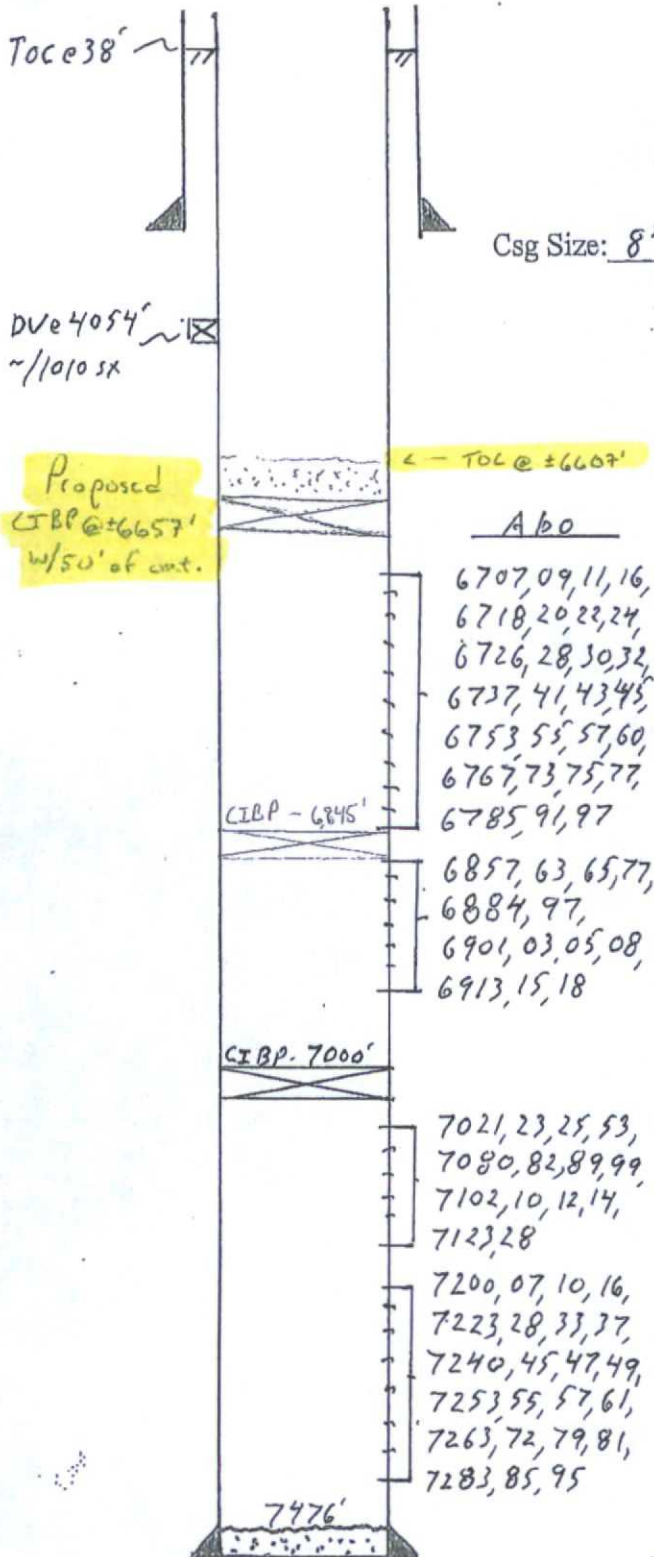 TOC @ 38'
Csg Size: 8
DV @ 4054'
~/1010 sx
Proposed
CIBP @ ±6657'
w/50' of cmt.
← TOC @ ±6607'
Abo
6707, 09, 11, 16,
6718, 20, 22, 24,
6726, 28, 30, 32,
6737, 41, 43, 45,
6753, 55, 57, 60,
6767, 73, 75, 77,
6785, 91, 97
CIBP - 6845'
6857, 63, 65, 77,
6884, 97,
6901, 03, 05, 08,
6913, 15, 18
CIBP - 7000'
7021, 23, 25, 53,
7080, 82, 89, 99,
7102, 10, 12, 14,
7123, 28
7200, 07, 10, 16,
7223, 28, 33, 37,
7240, 45, 47, 49,
7253, 55, 57, 61,
7263, 72, 79, 81,
7283, 85, 95
7476'